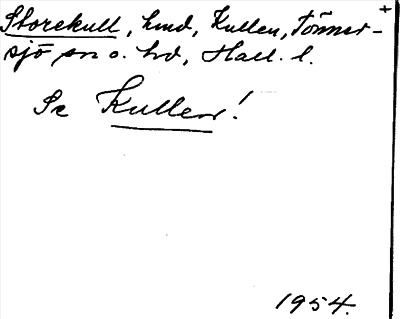 Storekull, hmd, Kullen, Tönner-
sjö sn o. hd, Hall. l.
Se Kullen!
1954.